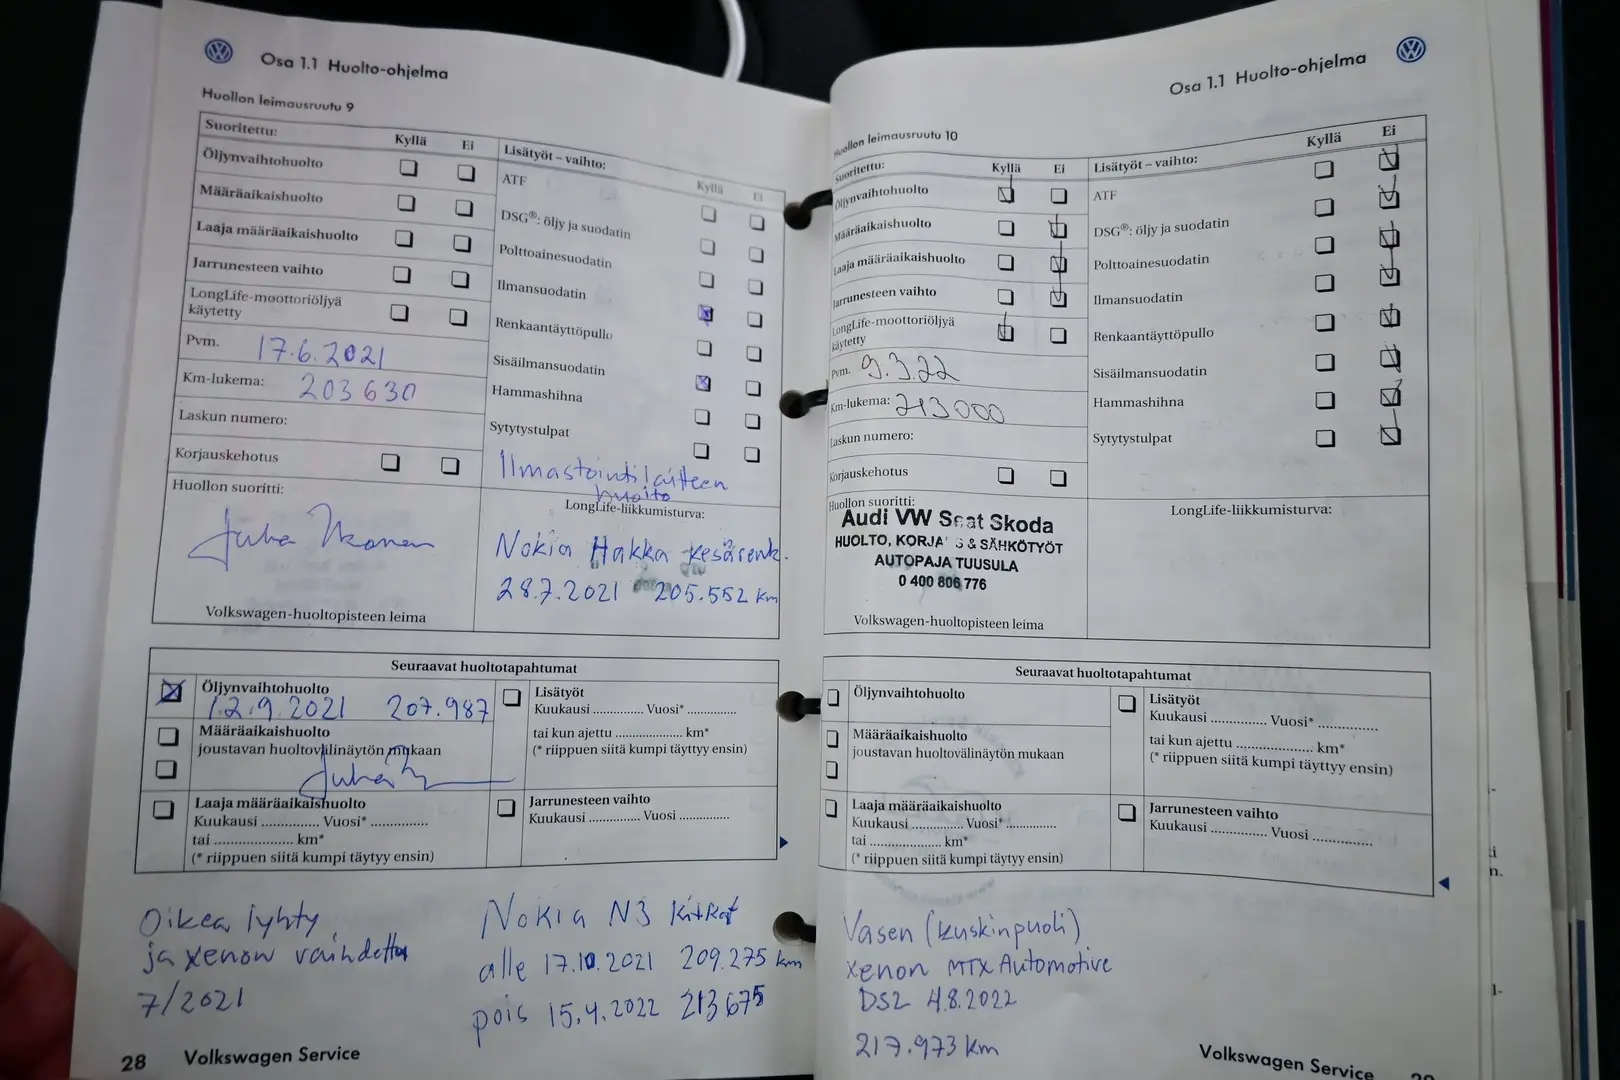 Osa 1.1 Huolto-ohjelma
Huollon leimausruutu 9
Suoritettu:
Kyllä
Ei
Öljynvaihtohuolto
Määräaikaishuolto
Laaja määräaikaishuolto
Jarrunesteen vaihto
LongLife-moottoriöljyä
käytetty
Pvm. 17.6.2021
Km-lukema: 203630
Laskun numero:
Korjauskehotus
Huollon suoritti:
Volkswagen-huoltopisteen leima
Lisätyöt – vaihto:
Kyllä
Ei
ATF
DSG®: öljy ja suodatin
Polttoainesuodatin
Ilmansuodatin
Renkaantäyttöpullo
Sisäilmansuodatin
Hammashihna
Sytytystulpat
Ilmastointilaitteen
huolto
LongLife-liikkumisturva:
Nokia Hakka kesärenk.
28.7.2021 205.552 km
Seuraavat huoltotapahtumat
Öljynvaihtohuolto
12.9.2021 207.987
Määräaikaishuolto
joustavan huoltovälinäytön mukaan
Laaja määräaikaishuolto
Kuukausi ............... Vuosi* ...............
tai ..................... km*
(* riippuen siitä kumpi täytyy ensin)
Lisätyöt
Kuukausi ............. Vuosi* .............
tai kun ajettu .................... km*
(* riippuen siitä kumpi täyttyy ensin)
Jarrunesteen vaihto
Kuukausi ............. Vuosi .............
Oikea lyhty
ja xenon vaihdettu
7/2021
Nokia N3 kitkat
alle 17.10.2021 209.275 km
pois 15.4.2022 213675
28 Volkswagen Service
Osa 1.1 Huolto-ohjelma
Huollon leimausruutu 10
Suoritettu:
Kyllä
Ei
Öljynvaihtohuolto
Määräaikaishuolto
Laaja määräaikaishuolto
Jarrunesteen vaihto
LongLife-moottoriöljyä
käytetty
Pvm. 9.3.22
Km-lukema: 213000
Laskun numero:
Korjauskehotus
Huollon suoritti:
Audi VW Seat Skoda
HUOLTO, KORJA S & SÄHKÖTYÖT
AUTOPAJA TUUSULA
0 400 806 776
Volkswagen-huoltopisteen leima
Lisätyöt – vaihto:
Kyllä
Ei
ATF
DSG®: öljy ja suodatin
Polttoainesuodatin
Ilmansuodatin
Renkaantäyttöpullo
Sisäilmansuodatin
Hammashihna
Sytytystulpat
LongLife-liikkumisturva:
Seuraavat huoltotapahtumat
Öljynvaihtohuolto
Määräaikaishuolto
joustavan huoltovälinäytön mukaan
Laaja määräaikaishuolto
Kuukausi .............. Vuosi* .............
tai ..................... km*
(* riippuen siitä kumpi täytyy ensin)
Lisätyöt
Kuukausi .............. Vuosi* ...............
tai kun ajettu .................... km*
(* riippuen siitä kumpi täyttyy ensin)
Jarrunesteen vaihto
Kuukausi .............. Vuosi ...............
Vasen (kuskinpuoli)
xenon MTX Automotive
DS2 4.8.2022
217.973 km
Volkswagen Service